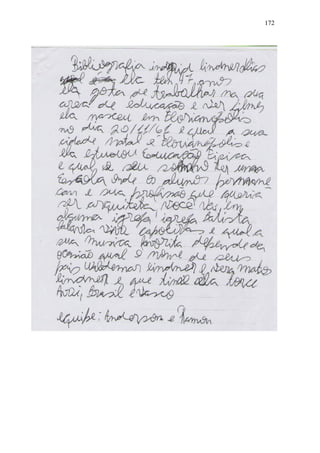 172
Bibliografia ingrid lindmerdias
ela tem 47 anos
ela gota de trabalhar na sua
area de educação e ver filmes
ela nasceu em Florianopolis
no dia 20/11/66 e qual a sua
cidade natal e Florianopolis e
ela estudou Educação Fisica
e qual é seu sonho ter uma
Escola onde os alunos
e sua profissão que queria
ser arquiteta você vas, em
alguma igreja igreja Batista
Palavra Viva e qual a
sua musica depende da
ocasião qual o nome de seus
pais Waldemar lindmer e vera mato
lindmer e que time ela torce
Avai, Brasil e vasco
equipe: Anderson e Ramon